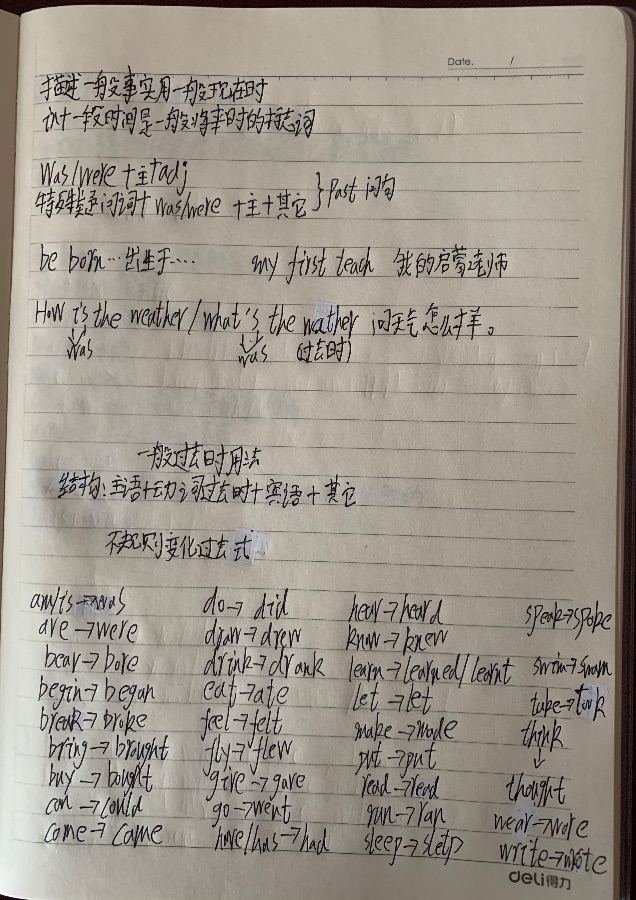 Date. /
描述一般事实用一般现在时
in十一段时间是一般将来时的标志词
Was/were + 主 + adj
特殊疑问词 + was/were + 主 + 其它 } Past 问句
be born … 出生于 …. my first teach 我的启蒙老师
How is the weather / what's the weather 问天气怎么样。
was was (过去时)
一般过去时用法
结构:主语+动词过去时+宾语+其它
不规则变化过去式
am/is→was do→did hear→heard speak→spoke
are→were draw→drew know→knew
bear→bore drink→drank learn→learned/learnt swim→swam
begin→began eat→ate let→let take→took
break→broke feel→felt make→made think
bring→brought fly→flew put→put ↓
buy→bought give→gave read→read thought
can→could go→went run→ran wear→wore
come→came have/has→had sleep→sletp write→wrote
deli得力